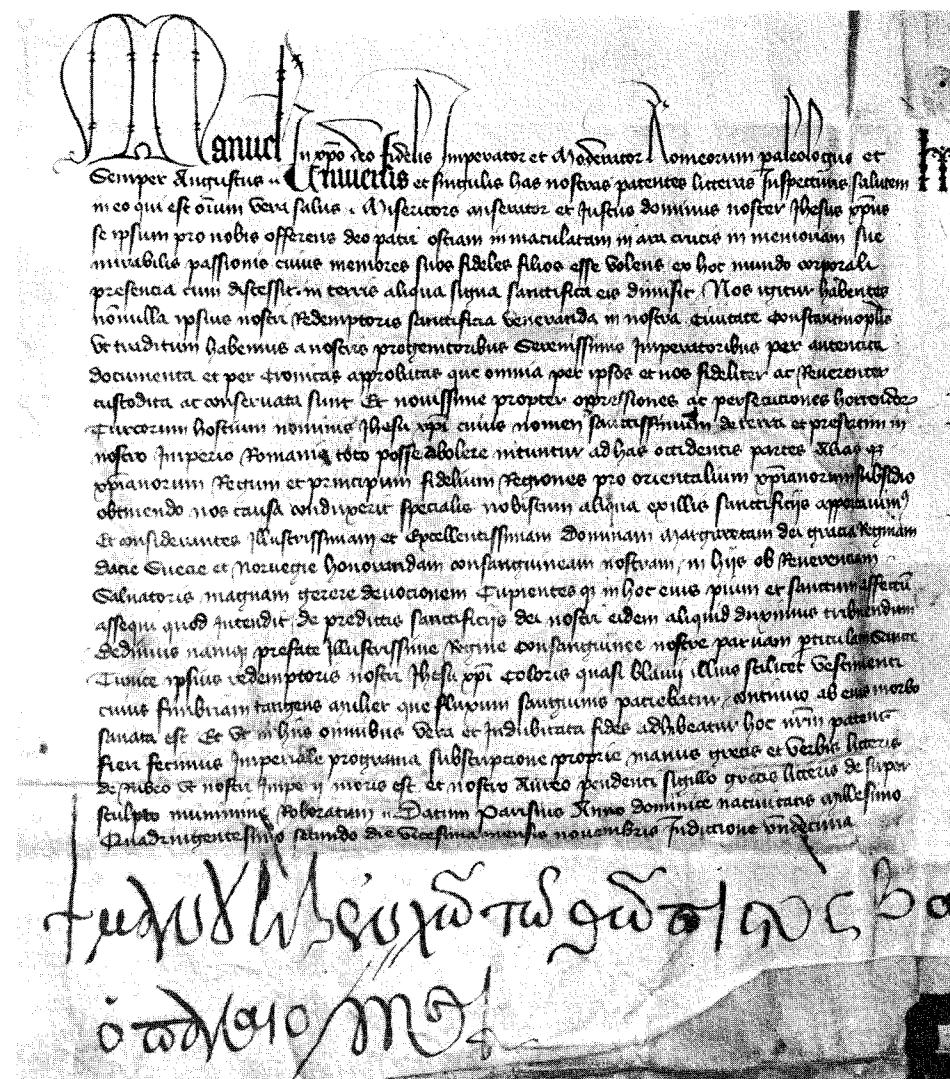 Manuel In xpo deo fidelis Imperator et Moderator Romeorum paleologus et
Semper Augustus Universis et singulis has nostras patentes litteras Inspecturis salutem
in eo qui est oium vera salus. Misericors miserator et Justus dominus noster Jhesus xpus
se ipsum pro nobis offerens deo patri ostiam in maculatam in ara crucis in memoriam sue
mirabilis passionis cuius memores suos fideles filios esse volens ex hoc mundo corporali
presencia cum discessit in terris aliqua signa sanctifica eis dimisit. Nos igitur habentes
nonulla ipsius nostri Redemptoris sanctificia veneranda in nostra Civitate
Ut traditum habemus a nostris progenitoribus Serenissimis Imperatoribus per autentica
documenta et per Cronicas approbatas que omnia per ipsos et nos fideliter ac Reverenter
custodita ac conservata sunt Et novissime propter opressiones ac persecutiones
Turcorum hostium nominis Jhesu xpi cuius nomen sanctissimum de terra et presertim in
nostro Imperio Romanie toto posse abolere nituntur ad has occidentis partes
xpianorum Regum et principum fidelium Regiones pro orientalium xpianorum subsidio
obtinendo nos causa conduxerit specialis nobiscum aliqua ex illis sanctificijs
Et considerantes Illustrissimam et Excellentissimam Dominam Margaretam dei gracia Reginam
Dacie Suecie et Norvegie honorandam consanguineam nostram, in hijs ob Reverenciam
Salvatoris magnam gerere devocionem Cupientes in hoc eius pium et sanctum
assequi quod Intendit, de predictis sanctificijs dei nostri eidem aliquid duximus tribuendum
Dedimus prefate Illustrissime Regine Consanguinee nostre parvam
Tunice ipsius redemptoris nostri Jhesu xpi Coloris quasi blavij illius scilicet vestimenti
cuius fimbriam tangens mulier que fluxum sanguinis paciebatur, continuo ab eius morbo
sanata est. Et Ut in hijs omnibus vera et Indubitata fides adhibeatur hoc nrm patens
fieri fecimus Imperiale programa subscripcione proprie manus grecis et verbis litteris
de Rubeo Ut nostri moris est et nostro Aureo pendenti sigillo grecis litteris de super
sculpto Roboratum Datum Parisius Anno dominice nativitatis millesimo
Quadringentesimo secundo die Vicesima mensis novembris Indictione undecima